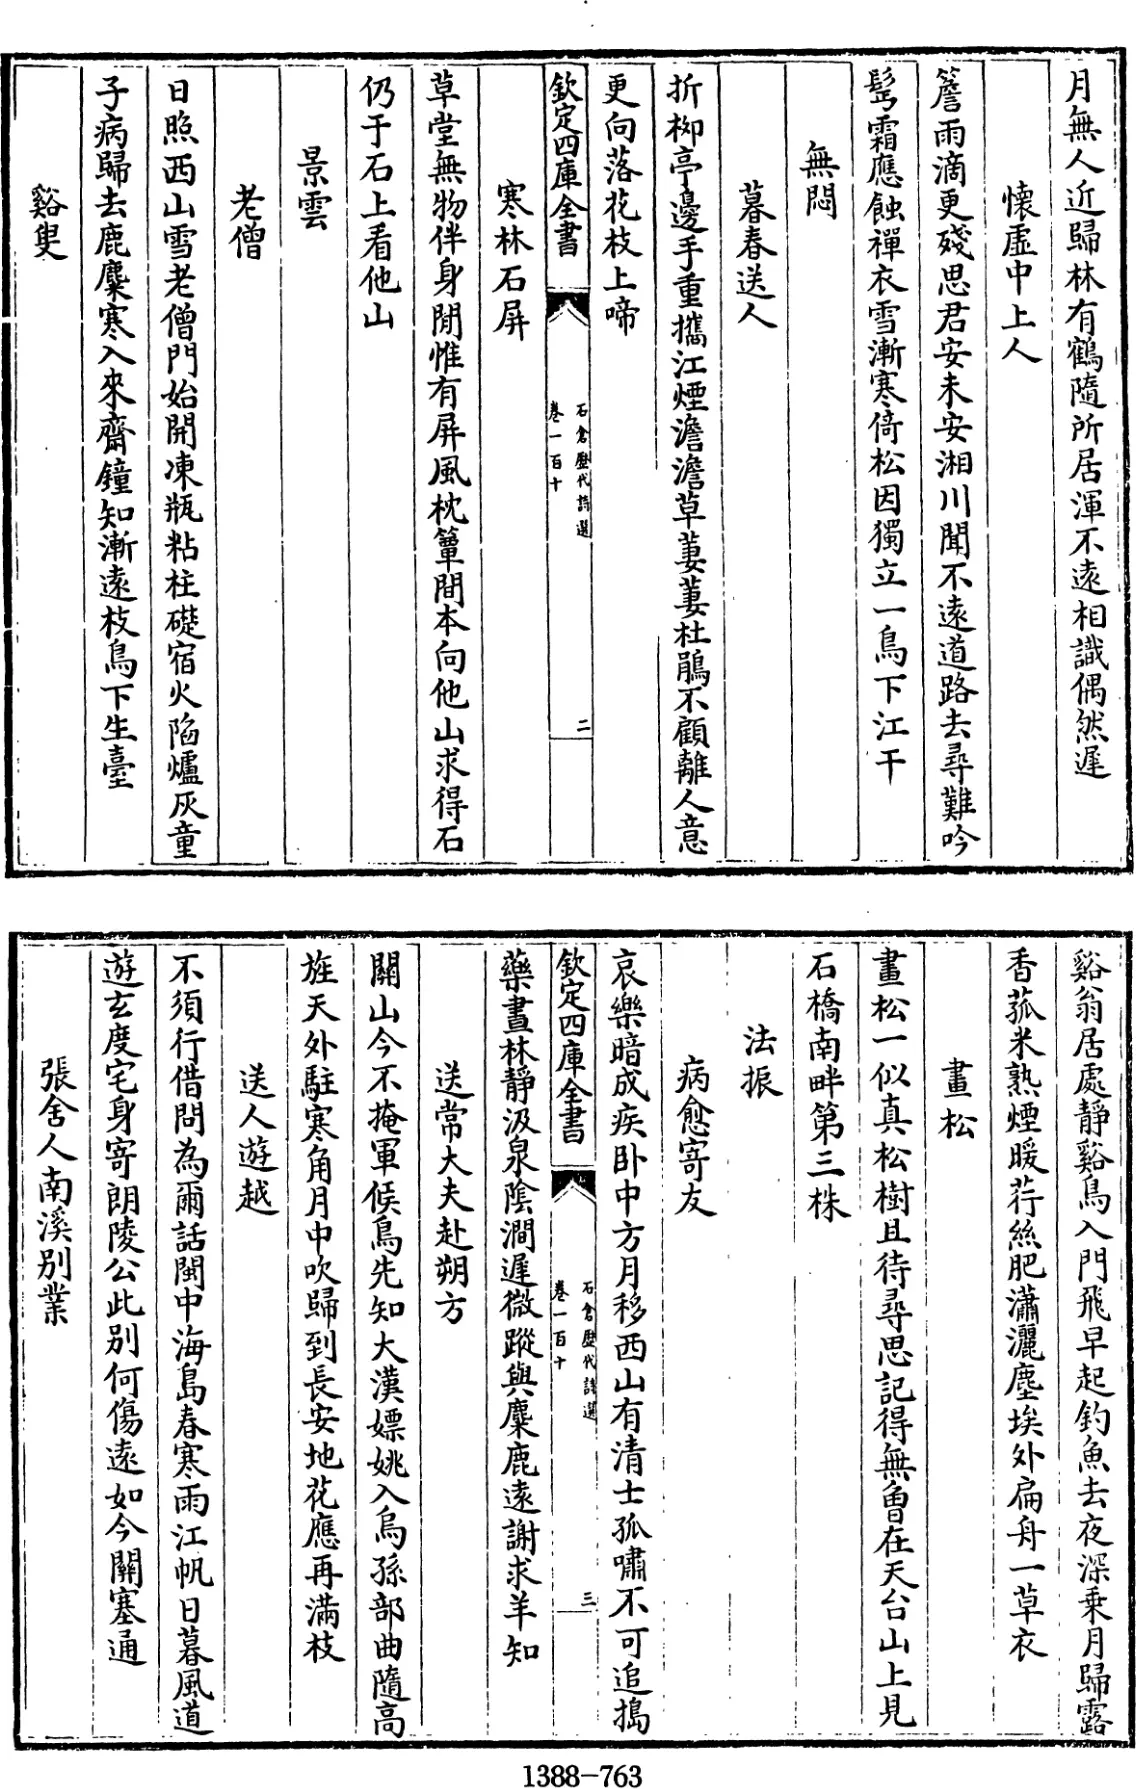 月無人近歸林有鶴隨所居渾不遠相識偶然遲
懷虛中上人
簷雨滴更殘思君安未安湘川聞不遠道路去尋難吟
髩霜應蝕禪衣雪漸寒倚松因獨立一鳥下江干
無悶
暮春送人
折柳亭邊手重攜江煙澹澹草萋萋杜鵑不顧離人意
更向落花枝上啼
欽定四庫全書
石倉歷代詩選
卷一百十
二
寒林石屏
草堂無物伴身閒惟有屏風枕簟間本向他山求得石
仍于石上看他山
景雲
老僧
日照西山雪老僧門始開凍瓶粘柱礎宿火陷爐灰童
子病歸去鹿麑寒入來齋鐘知漸遠枝鳥下生臺
谿叟
谿翁居處靜谿鳥入門飛早起釣魚去夜深乗月歸露
香菰米熟煙暖荇絲肥瀟灑塵埃外扁舟一草衣
畫松
畫松一似真松樹且待尋思記得無曾在天台山上見
石橋南畔第三株
法振
病愈寄友
哀樂暗成疾卧中方月移西山有清士孤嘯不可追搗
欽定四庫全書
石倉歷代詩選
卷一百十
三
藥晝林靜汲泉陰澗遲微蹤與麋鹿遠謝求羊知
送常大夫赴朔方
關山今不掩軍候鳥先知大漢嫖姚入烏孫部曲隨高
旌天外駐寒角月中吹歸到長安地花應再滿枝
送人遊越
不須行借問為爾話閩中海島春寒雨江帆日暮風道
遊玄度宅身寄朗陵公此别何傷遠如今關塞通
張舍人南溪别業
1388-763